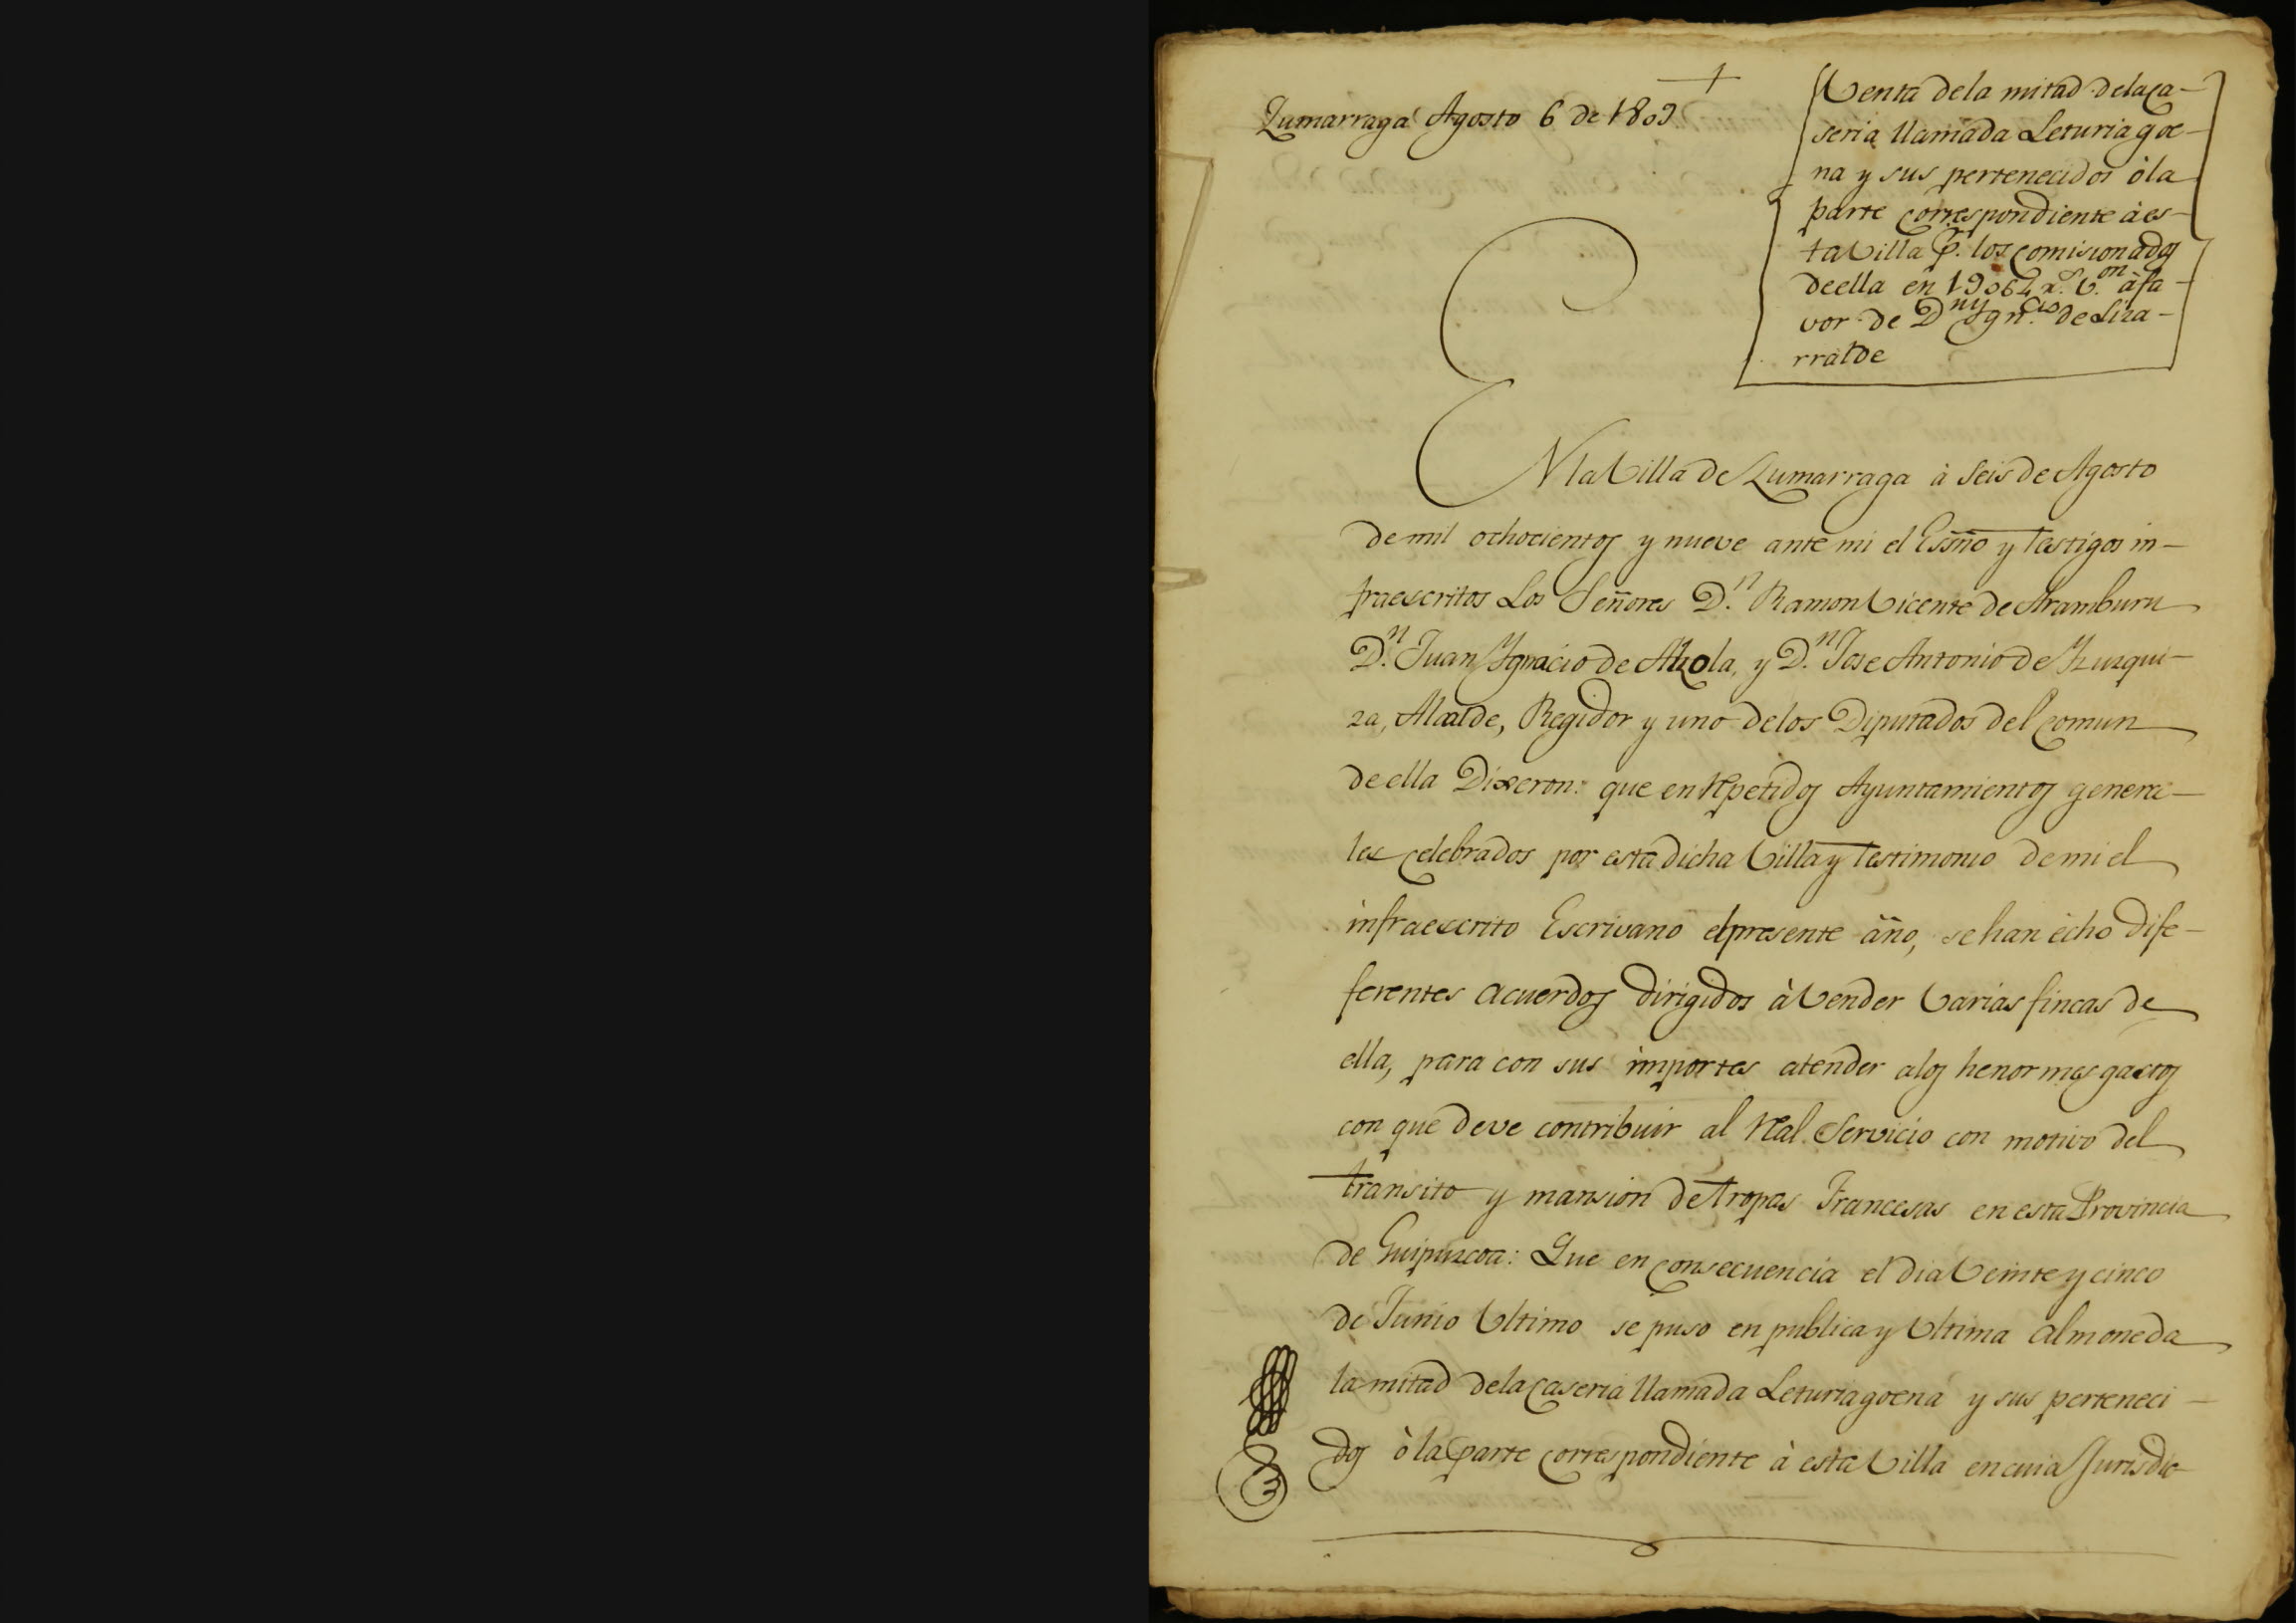 +
Zumarraga Agosto 6 de 1809
Venta de la mitad dela ca-
seria llamada Leturiagoe-
na y sus pertenecidos ò la
parte correspondiente à es-
ta Villa p. los comisionados
de ella en 19064 r.s v.on à fa-
vor de D.n Ygn.cio de Liza-
rralde
EN la Villa de Zumarraga à seis de Agosto
de mil ochocientos y nueve ante mi el Essño y testigos in-
fraescritos Los Señores D.n Ramon Vicente de Aramburu
D.n Juan Ygnacio de Alzola, y D.n Jose Antonio de Yzuzqui-
za, Alcalde, Regidor y uno delos Diputados del comun
de ella Dixeron: que en repetidos Ayuntamientos genera-
les celebrados por esta dicha Villa y testimonio de mi el
infraescrito Escrivano el presente año, se han echo dife-
ferentes acuerdos dirigidos à Vender Varias fincas de
ella, para con sus importes atender alos henormes gastos
con que deve contribuir al Real Servicio con motivo del
transito y mansion de tropas Francesas en esta Provincia
de Guipuzcoa: Que en consecuencia el dia Veinte y cinco
de Junio Ultimo se puso en publica y Ultima almoneda
la mitad dela caseria llamada Leturiagoena y sus perteneci-
dos ò la parte correspondiente à esta Villa en cuia Jurisdic-